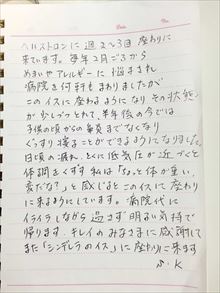 ヘルストロンに週2〜3回座りに
来ています。毎年2月ごろから
めまいやアレルギーに悩まされ
病院を何軒もまわりましたが
このイスに座わるようになりその状態
が少しづつとれて、半年後の今では
子供の頃からの鼻炎までなくなり
ぐっすり寝ることができるようになりました。
日頃の疲れ、とくに低気圧が近づくと
体調をくずす私は「ちょっと体が重い、
変だな?」と感じるとこのイスに座わり
に来るようにしています。病院代に
イライラしながら過さず明るい気持で
帰ります。キレイのみなさまに感謝して
また「シンデレラのイス」に座わりに来ます
S.K